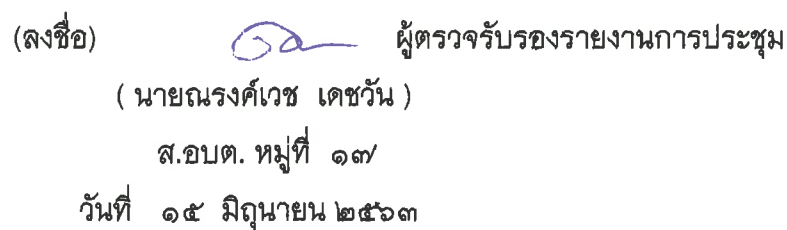 (ลงชื่อ) ผู้ตรวจรับรองรายงานการประชุม
( นายณรงค์เวช เดชวัน )
ส.อบต. หมู่ที่ ๑๗
วันที่ ๑๕ มิถุนายน ๒๕๖๓